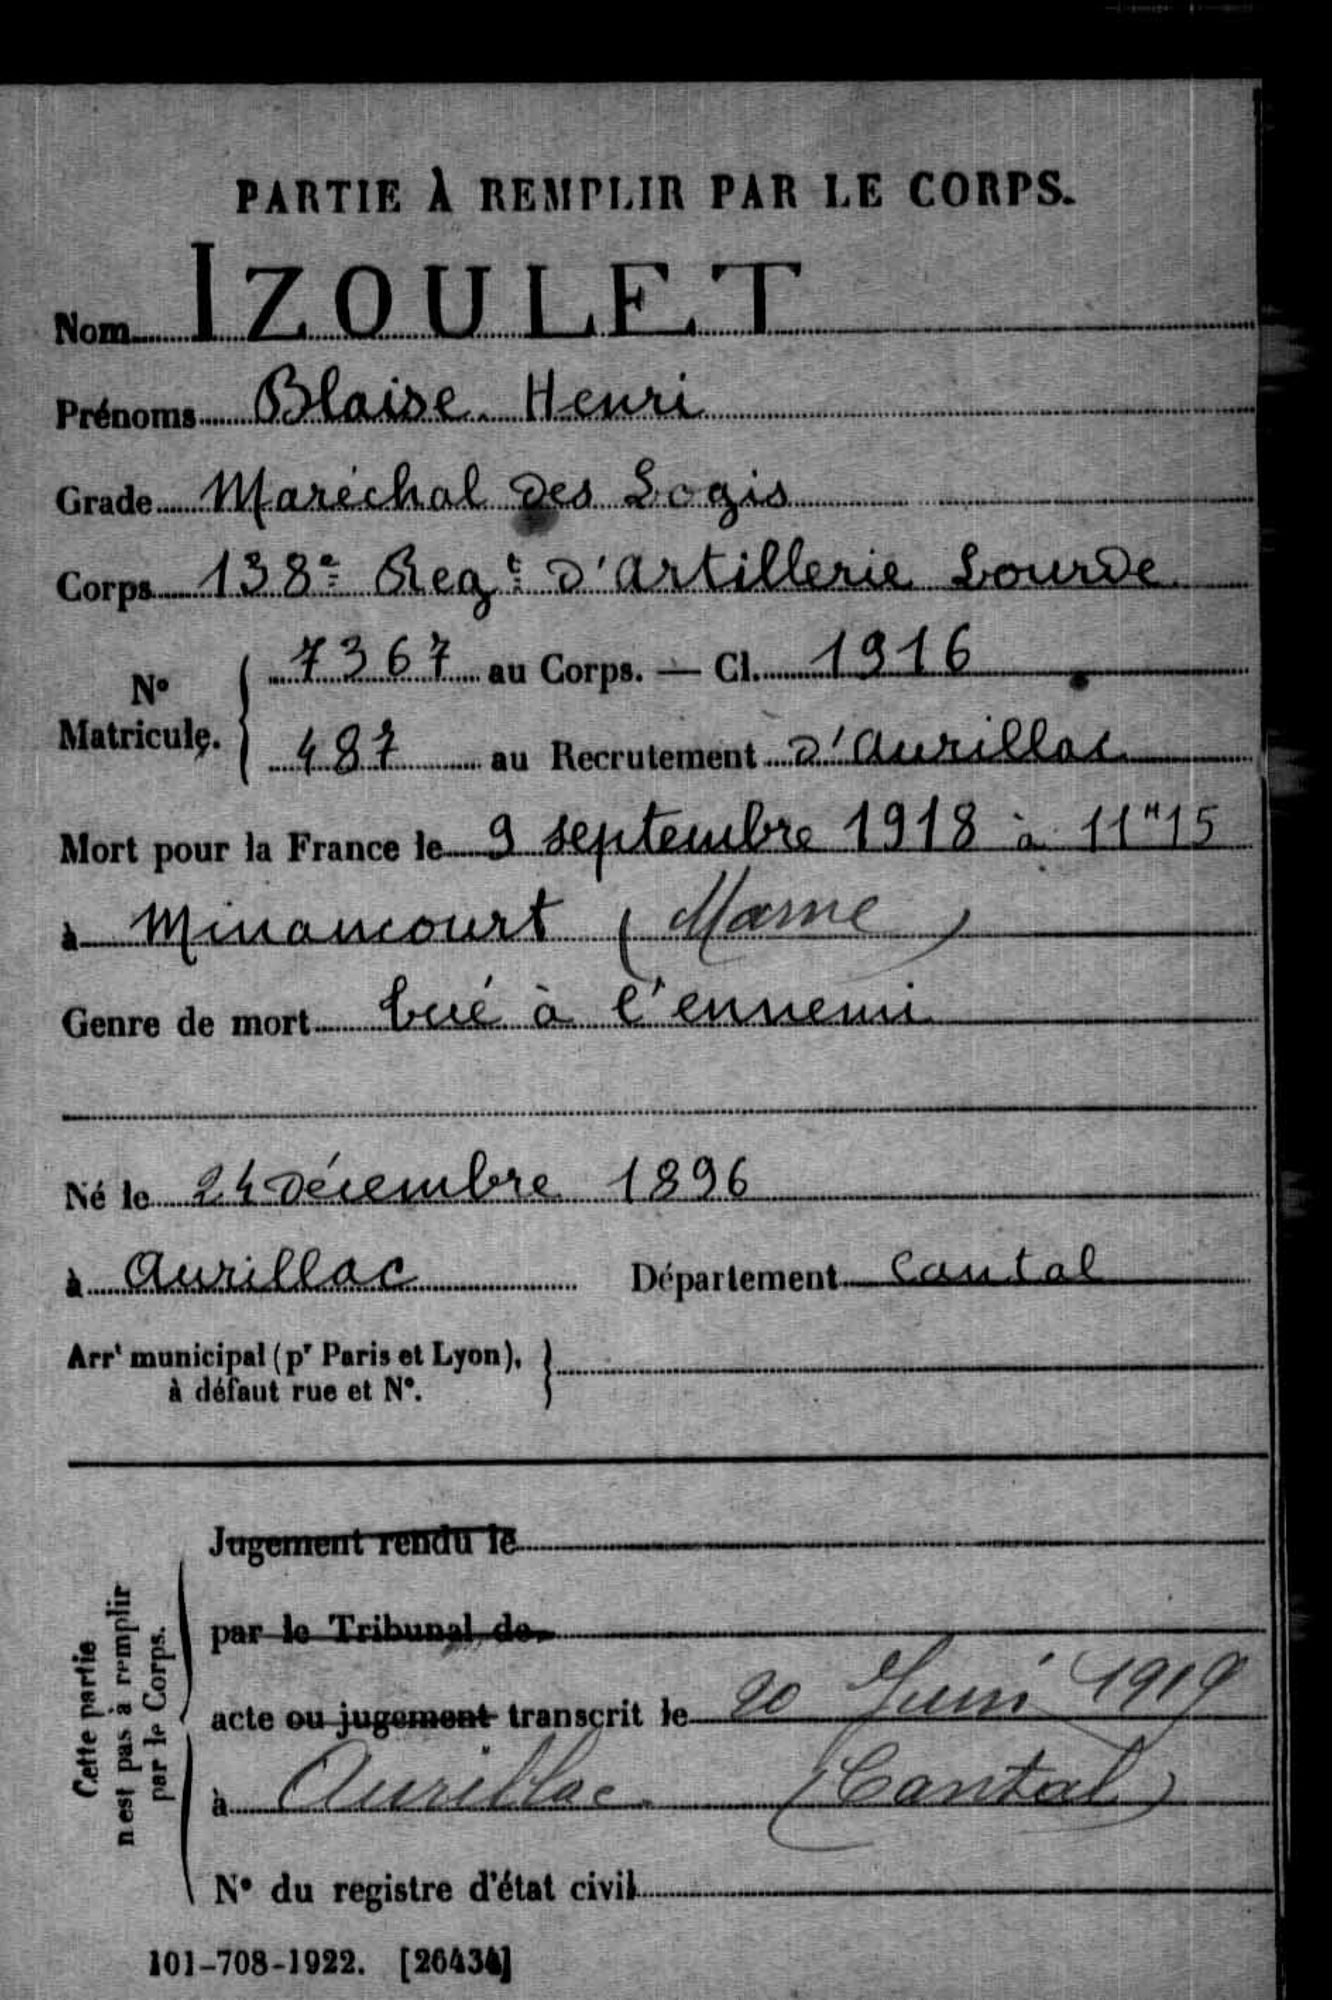 PARTIE À REMPLIR PAR LE CORPS.
Nom IZOULET
Prénoms Blaise Henri
Grade Maréchal des Logis
Corps 138e Regt d'Artillerie Lourde
N° Matricule. { 7367 au Corps. — Cl. 1916
487 au Recrutement d'Aurillac
Mort pour la France le 9 septembre 1918 à 11H15
à Minaucourt (Marne)
Genre de mort tué à l'ennemi
Né le 24 Décembre 1896
à Aurillac Département Cantal
Arrt municipal (pr Paris et Lyon),
à défaut rue et N°.
Cette partie
n'est pas à remplir
par le Corps.
Jugement rendu le
par le Tribunal de
acte ou jugement transcrit le 20 Juin 1919
à Aurillac (Cantal)
N° du registre d'état civil
101-708-1922. [26434]